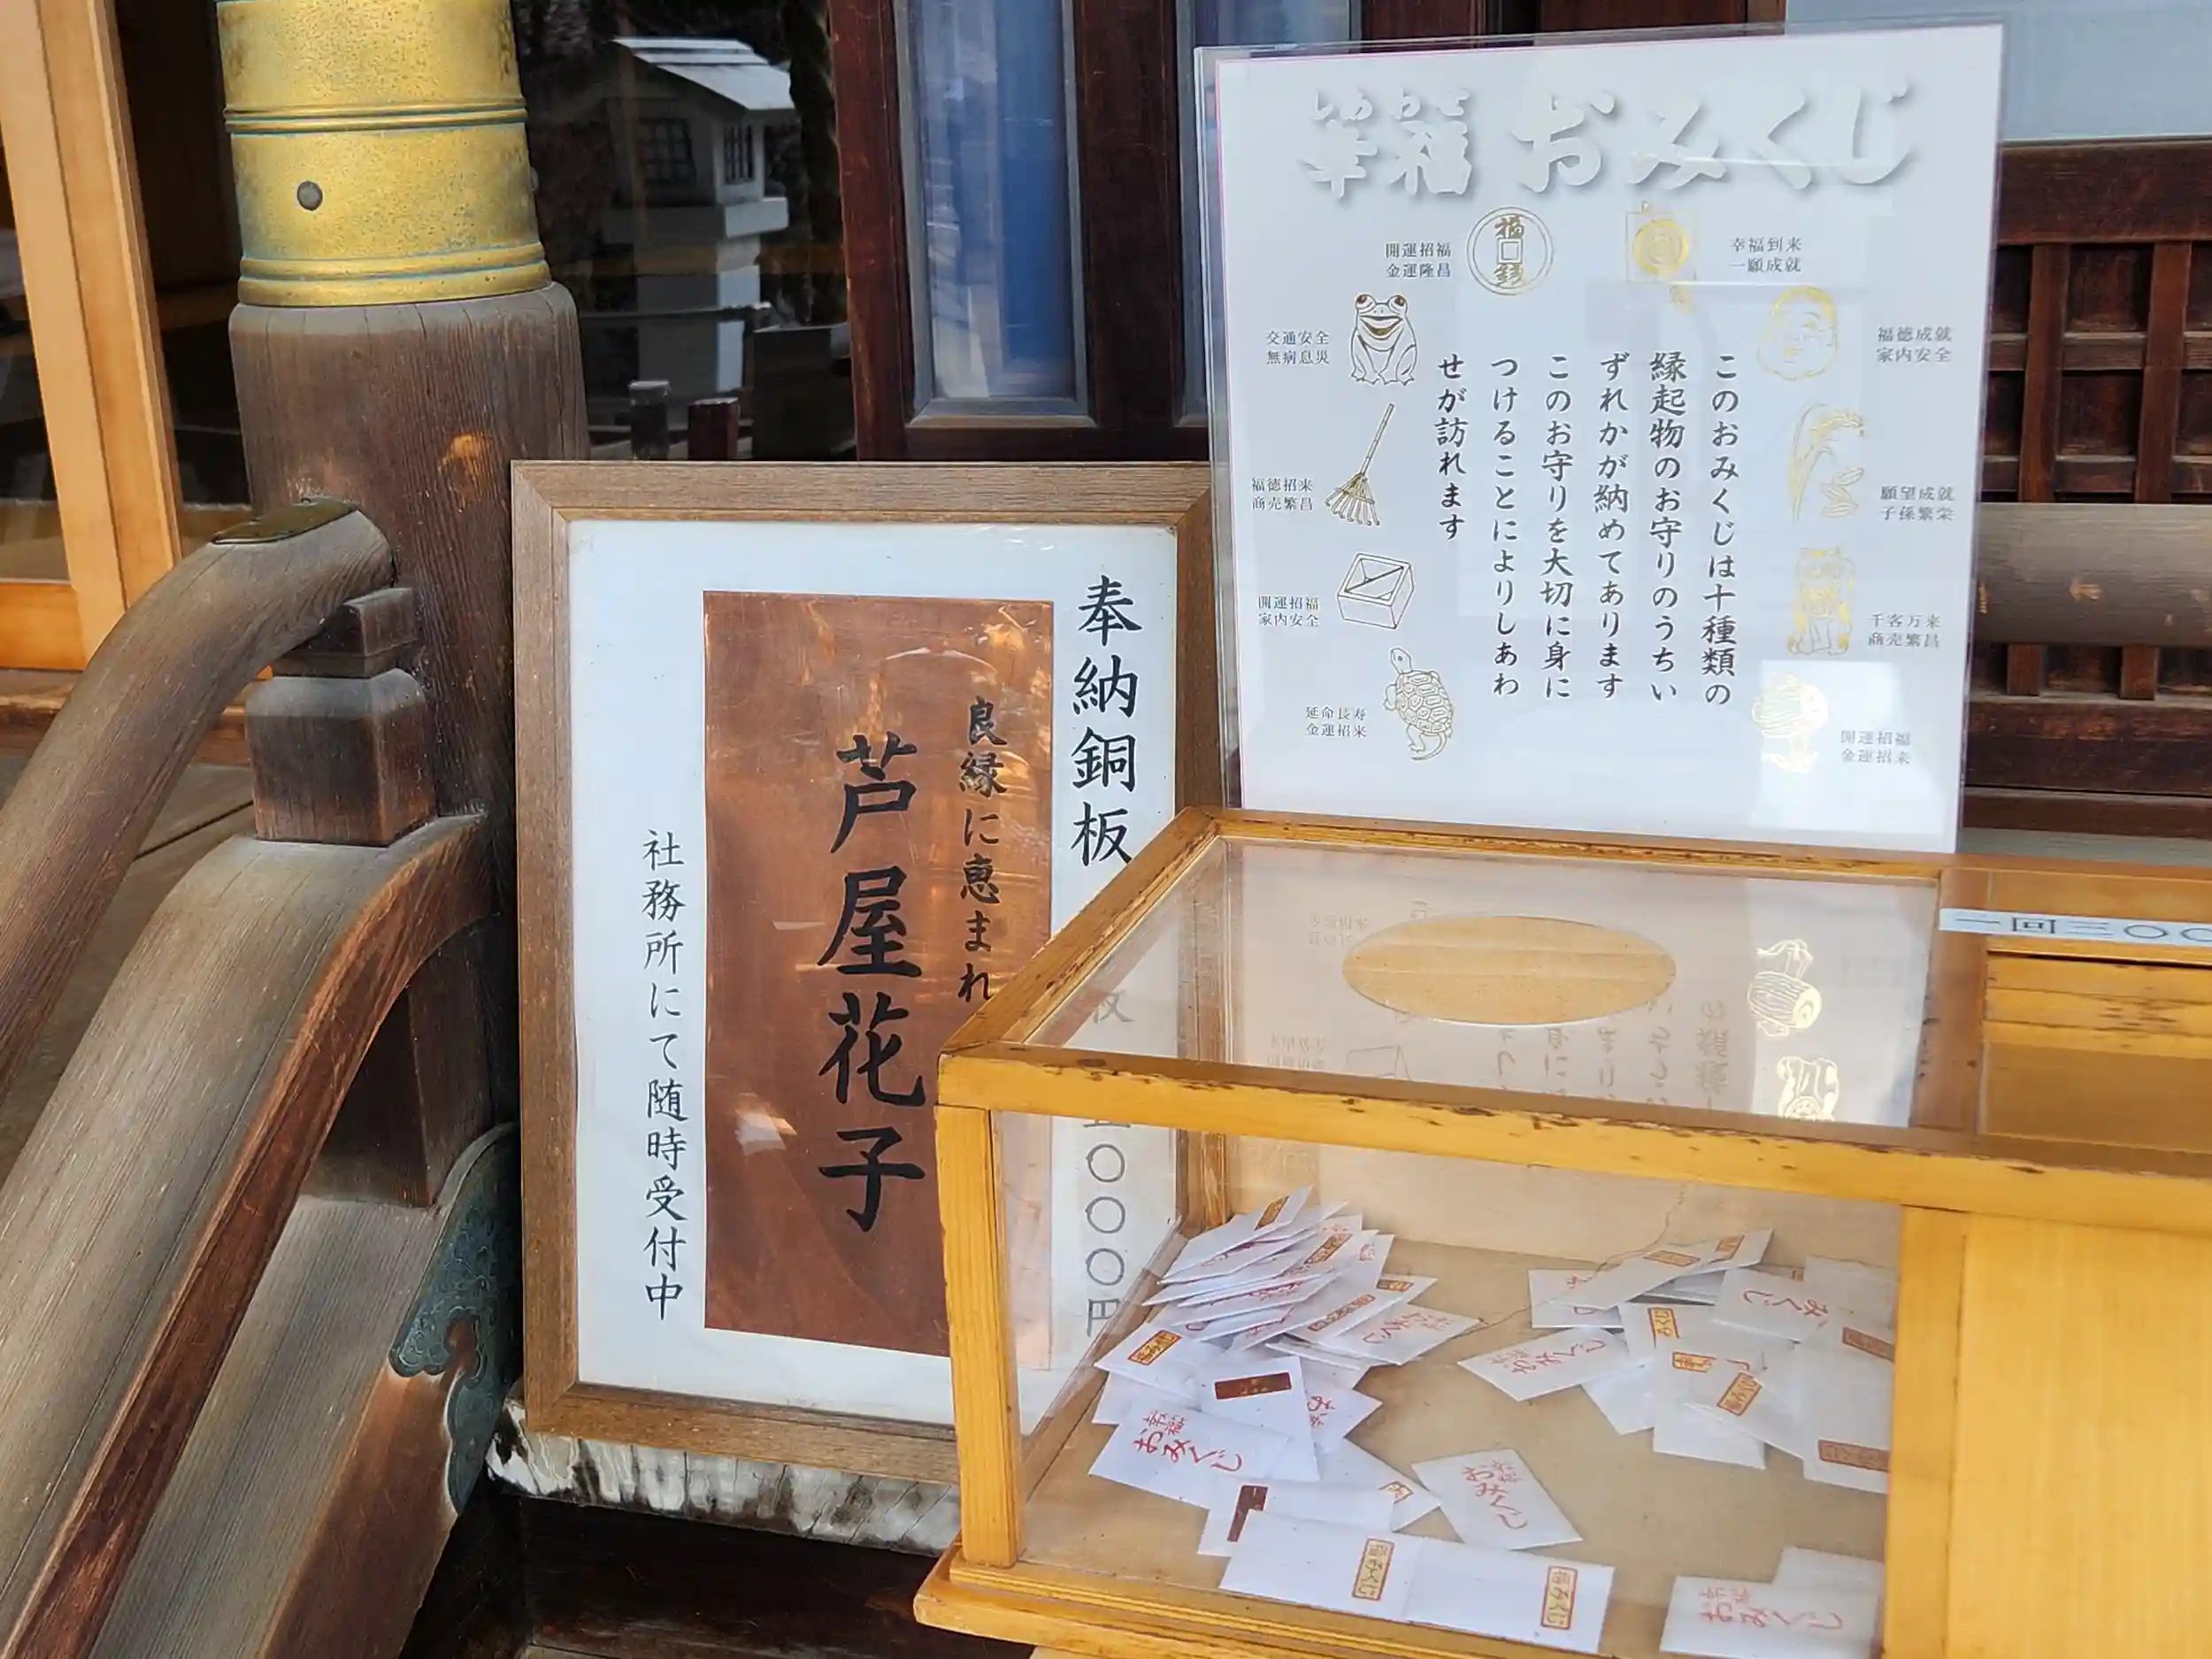 幸福 おみくじ
幸福到来
一願成就
福徳成就
家内安全
願望成就
子孫繁栄
千客万来
商売繁昌
開運招福
金運招来
福銭
開運招福
金運隆昌
交通安全
無病息災
福徳招来
商売繁昌
開運招福
家内安全
延命長寿
金運招来
このおみくじは十種類の
縁起物のお守りのうちい
ずれかが納めてあります
このお守りを大切に身に
つけることによりしあわ
せが訪れます
奉納銅板
枚
〇〇〇円
良縁に恵まれ
芦屋花子
社務所にて随時受付中
一回三〇〇
幸福
おみくじ
おみくじ
おみくじ
おみくじ